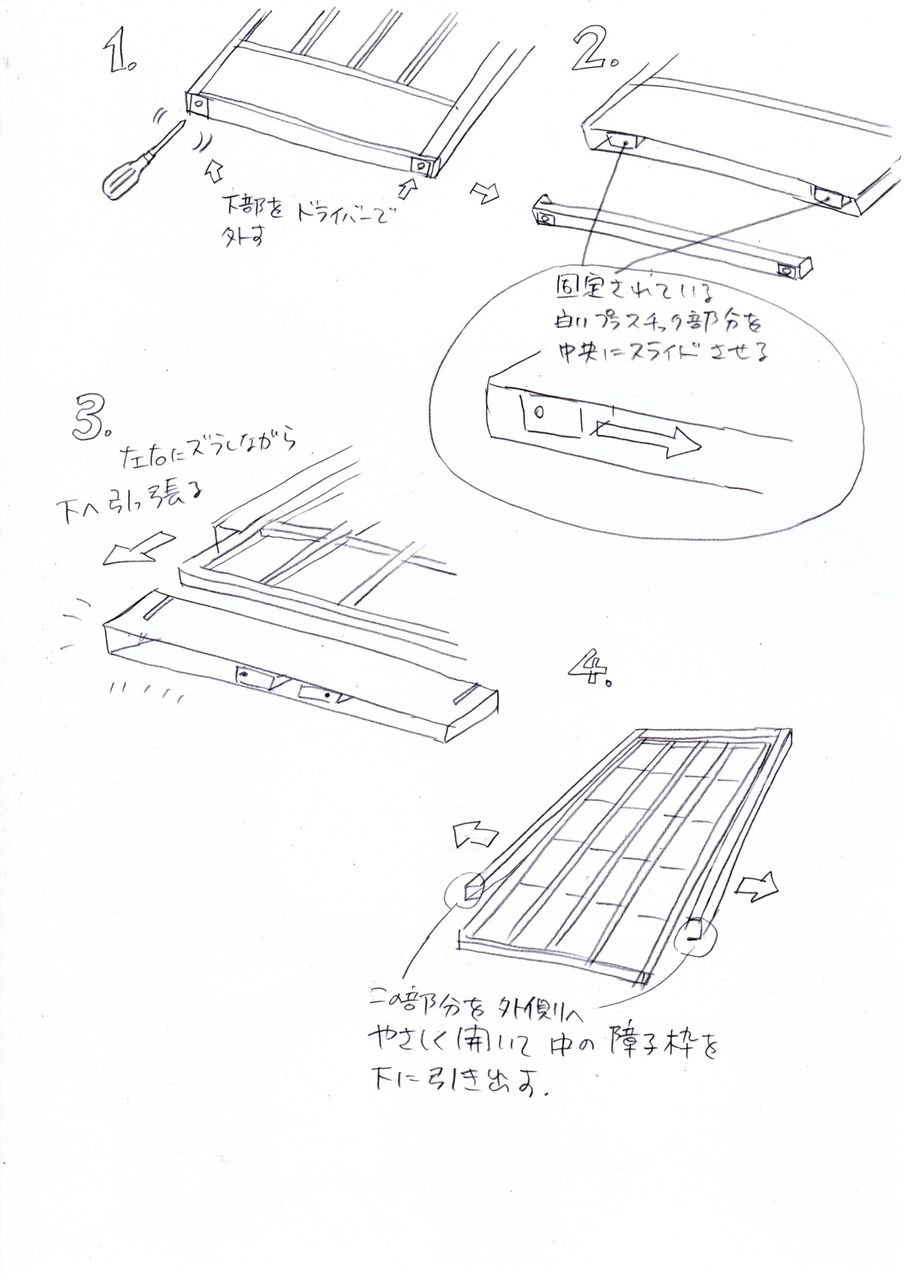 1.
下部をドライバーで
外す
2.
固定されている
白いプラスチック部分を
中央にスライドさせる
3.
左右にズラしながら
下へ引っ張る
4.
この部分を外側へ
やさしく開いて中の障子枠を
下に引き出す.